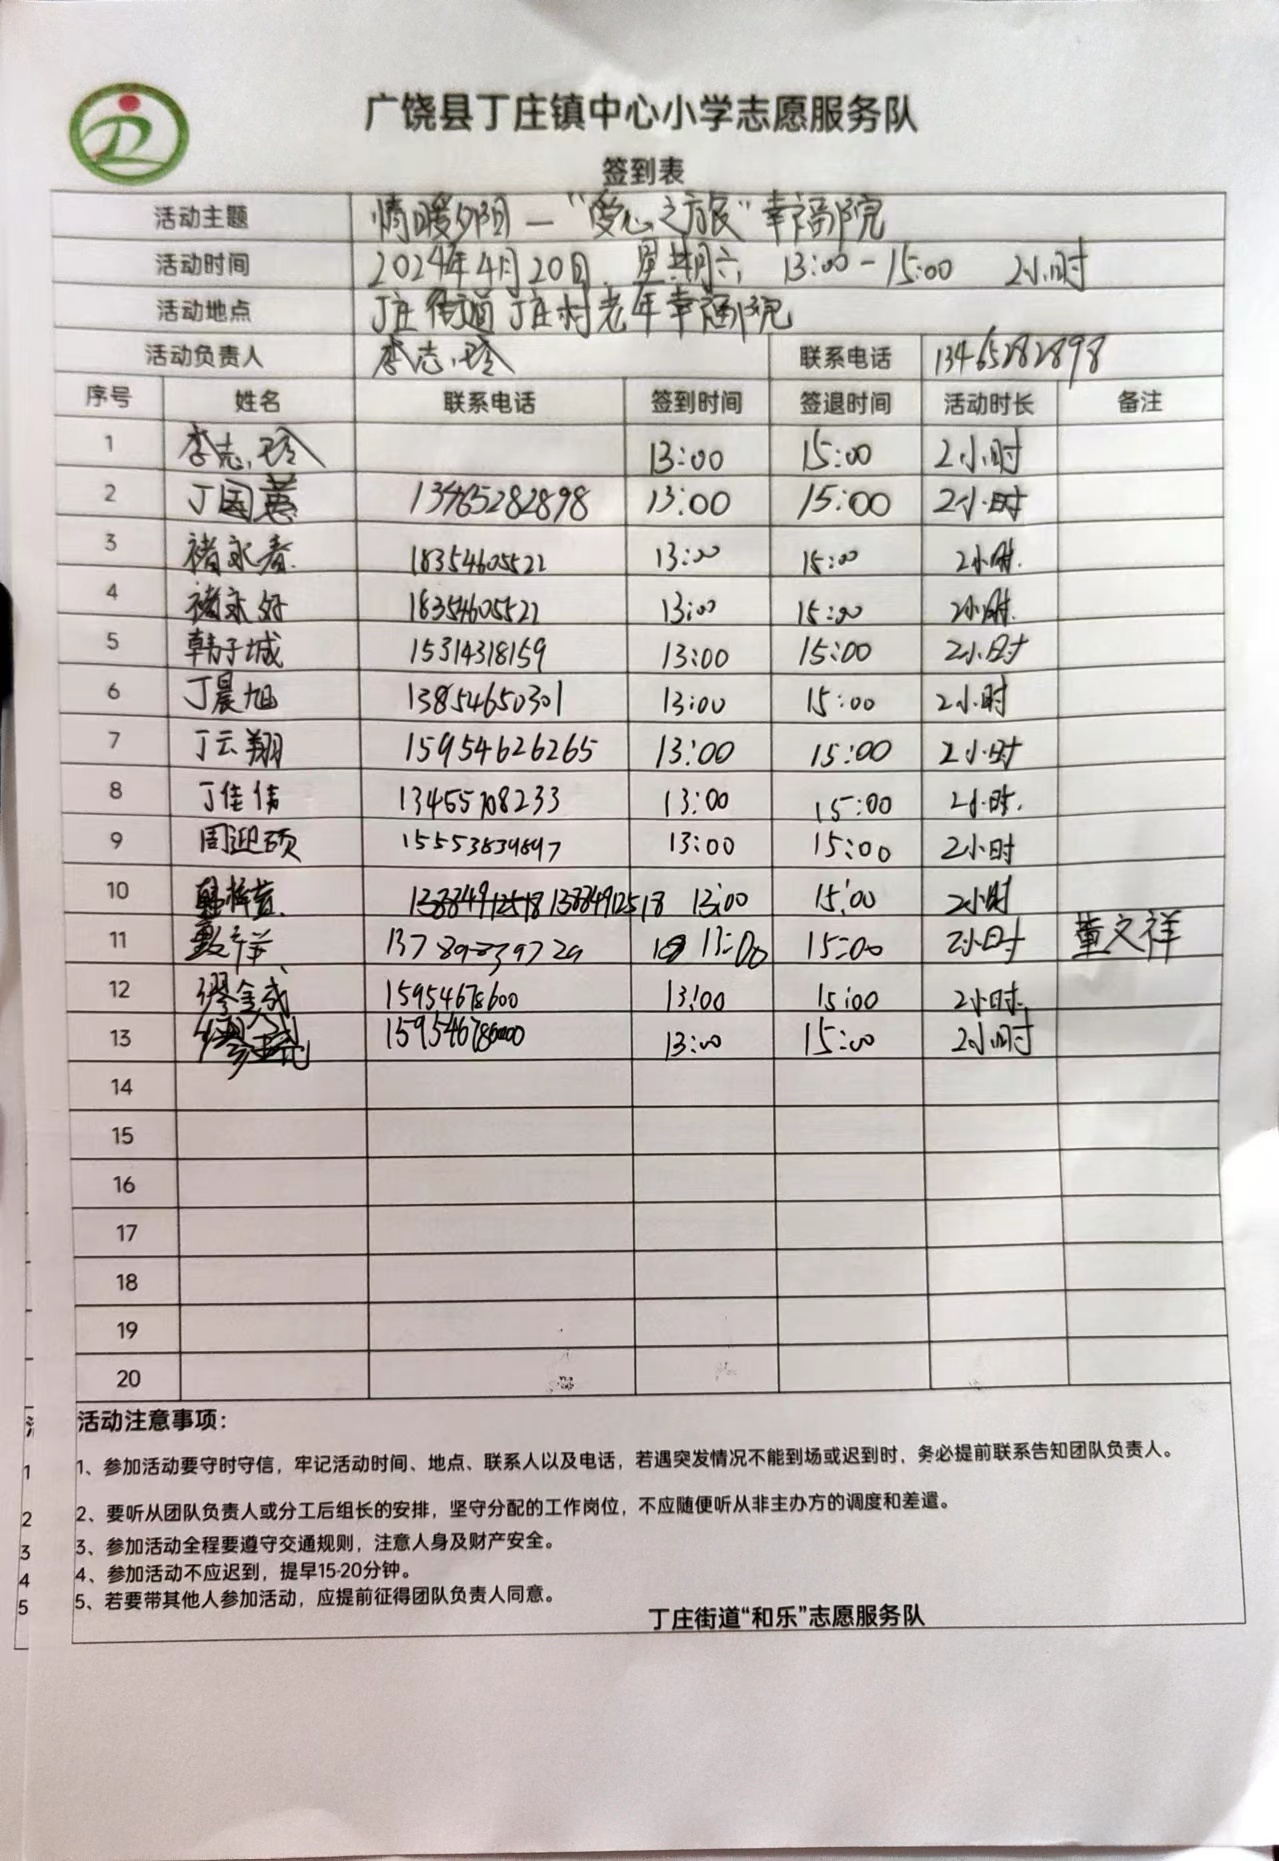 广饶县丁庄镇中心小学志愿服务队
签到表
活动主题 情暖夕阳—“爱心之旅”幸福院
活动时间 2024年4月20日 星期六 13:00-15:00 2小时
活动地点 丁庄街道丁庄村老年幸福院
活动负责人 李志玲 联系电话 13465282898
序号 姓名 联系电话 签到时间 签退时间 活动时长 备注
1 李志玲 13:00 15:00 2小时
2 丁国英 13465282898 13:00 15:00 2小时
3 褚永春 18354605522 13:00 15:00 2小时.
4 褚永好 18354605522 13:00 15:00 2小时.
5 韩子城 15314318159 13:00 15:00 2小时
6 丁晨旭 13854650301 13:00 15:00 2小时
7 丁云翔 15954626265 13:00 15:00 2小时
8 丁佳伟 13455708233 13:00 15:00 2小时.
9 周迎硕 15553839897 13:00 15:00 2小时
10 13:00 15:00 2小时
11 13:00 15:00 2小时 董文祥
12 缪金成 15954678600 13:00 15:00 2小时
13 13:00 15:00 2小时
14
15
16
17
18
19
20
活动注意事项：
1、参加活动要守时守信，牢记活动时间、地点、联系人以及电话，若遇突发情况不能到场或迟到时，务必提前联系告知团队负责人。
2、要听从团队负责人或分工后组长的安排，坚守分配的工作岗位，不应随便听从非主办方的调度和差遣。
3、参加活动全程要遵守交通规则，注意人身及财产安全。
4、参加活动不应迟到，提早15-20分钟。
5、若要带其他人参加活动，应提前征得团队负责人同意。
丁庄街道“和乐”志愿服务队